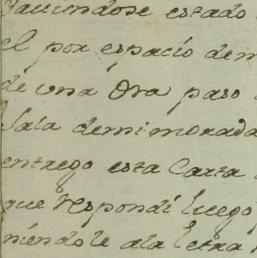 haviendose estado
el por espacio dem
de una Ora paso
Sala demimorada
entrego esta Carta
que respondi luego
niendole ala letra